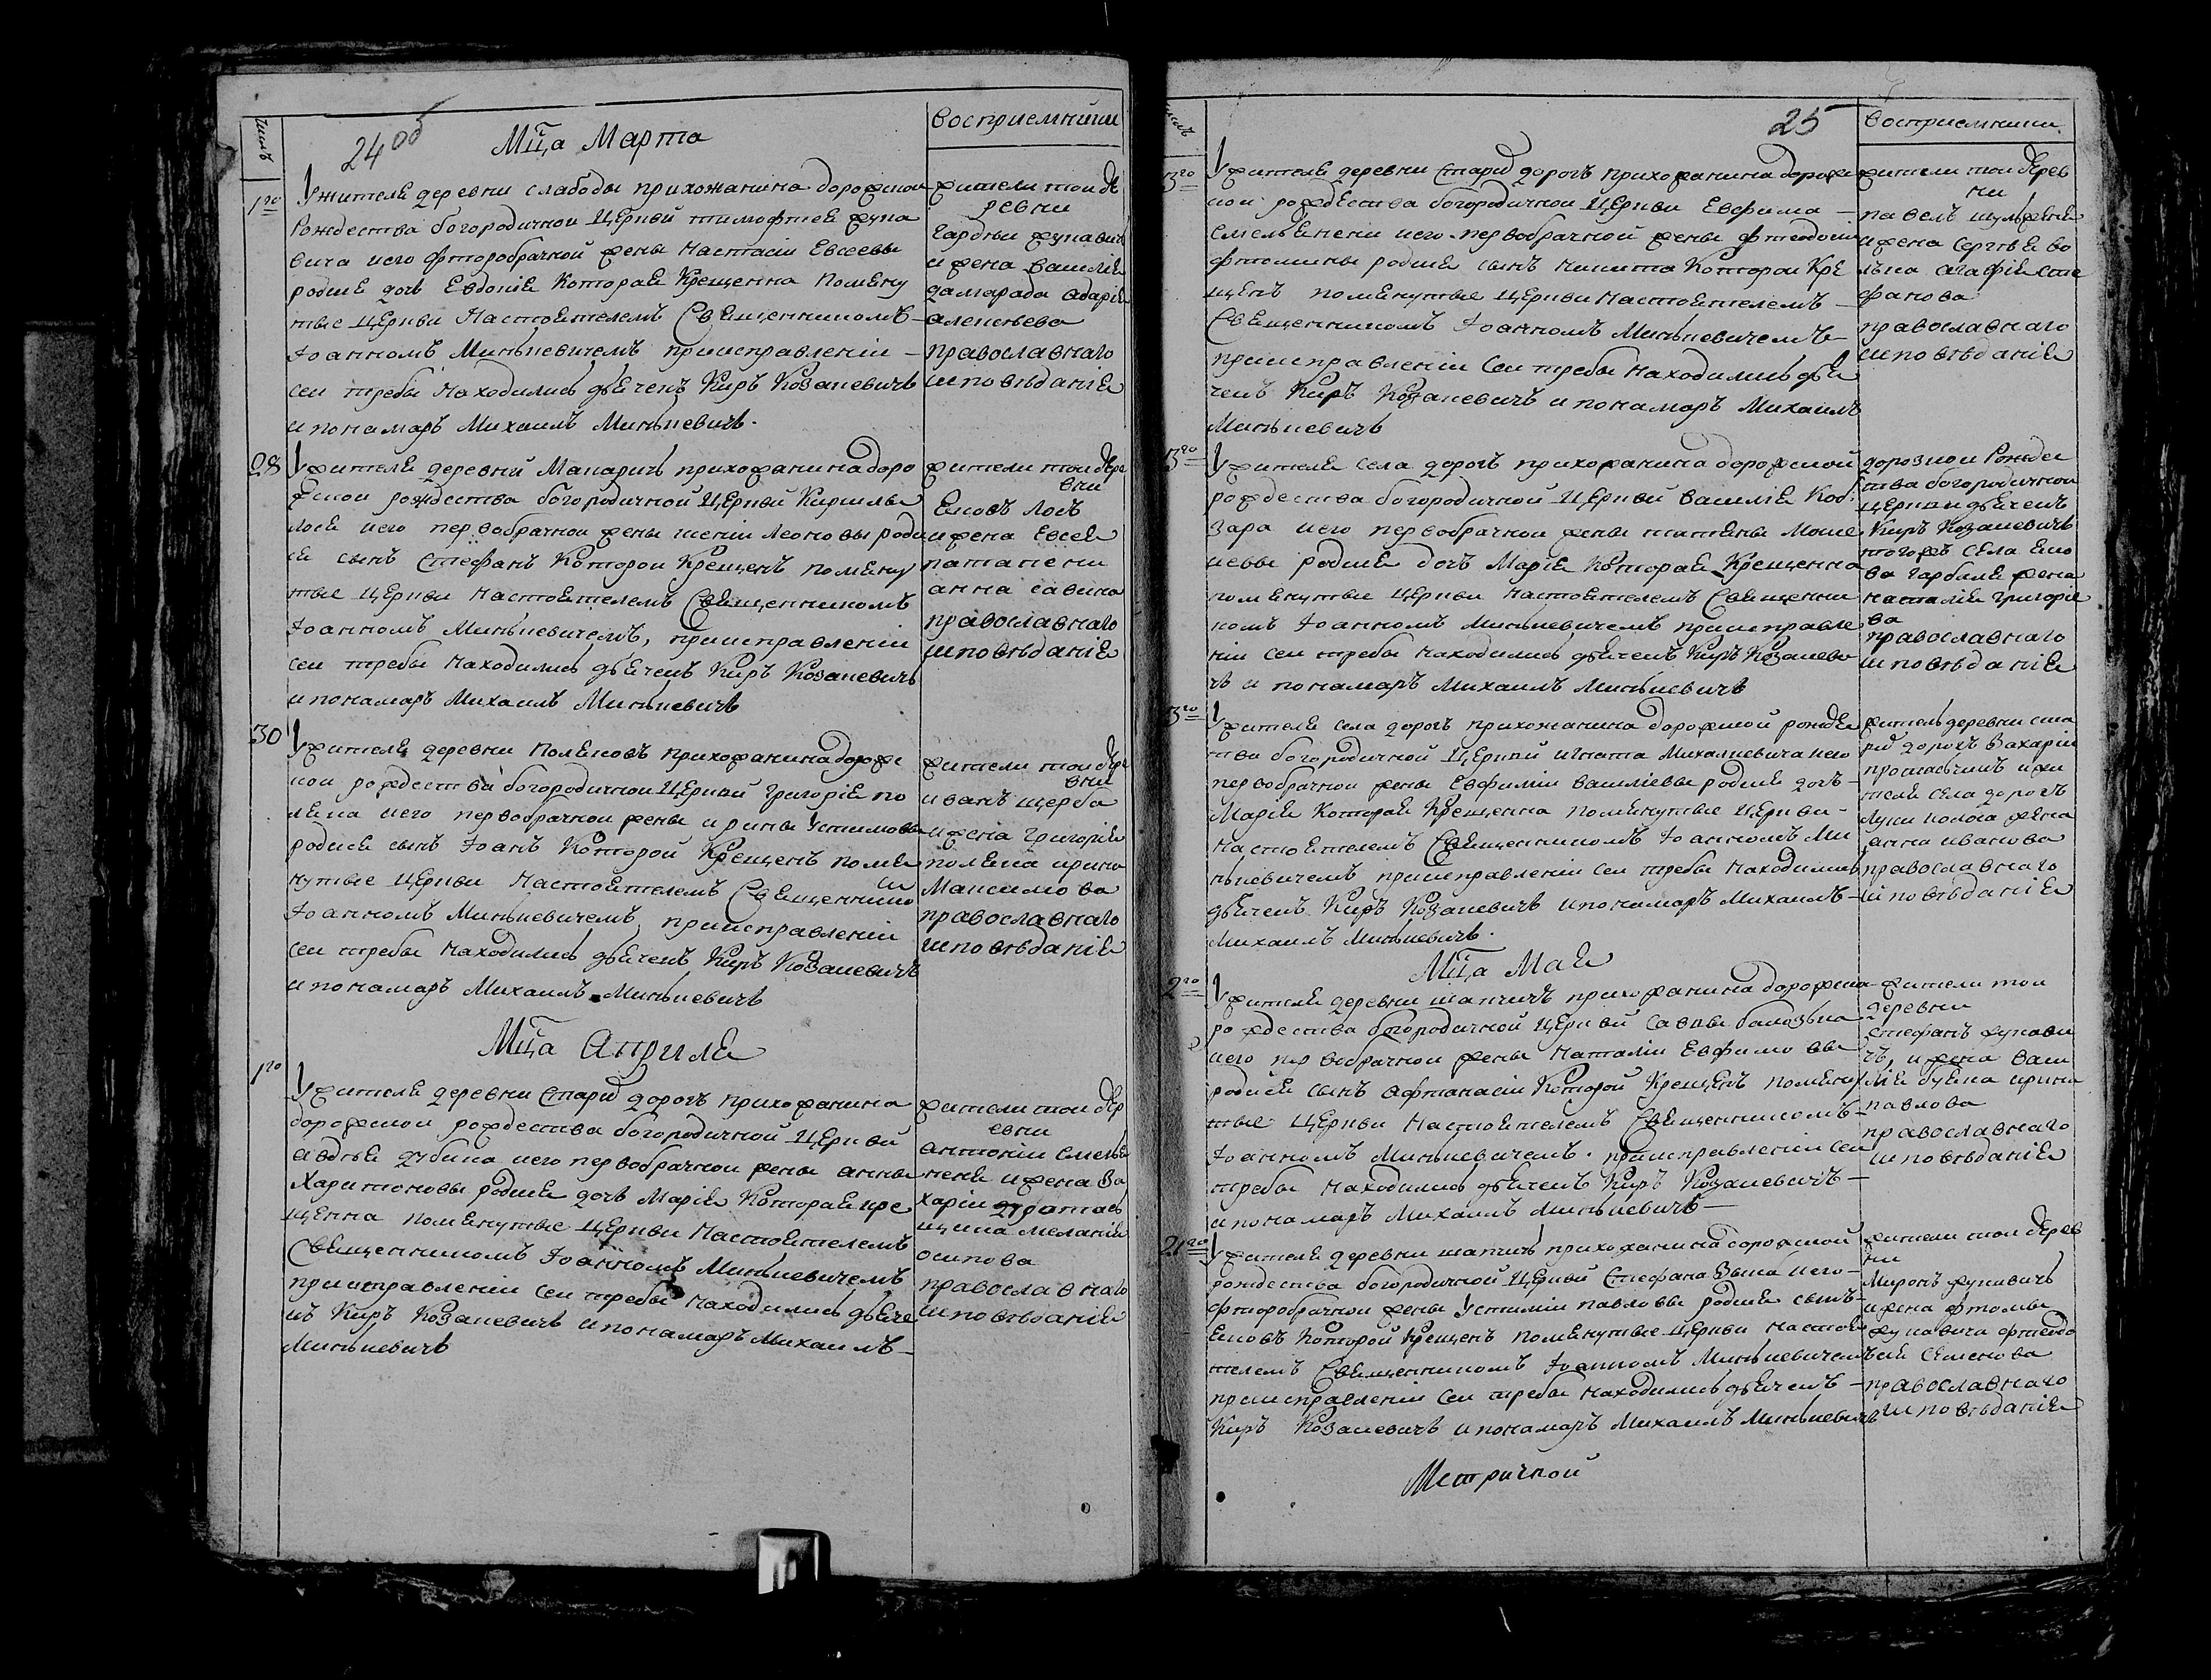 Числъ
24об
Мца Марта
восприемники
1го
У жителя деревни слабоды прихожанина дорожкои
Рождества богородичнои церкви тимофтея жука
вича иего фторобрачной жены настасіи Евсеевы
родися дочъ Евдокія Которая Крещенна Помяну
тые церкви Настоятелемъ Священникомъ
Іоанномъ Минькевичемъ приисправленіи
сеи требы находились дьяченъ Киръ Козакевичъ
и понамаръ Михаилъ Минькевичъ.
жители тои де
ревни
Гардѣи жукавич
и жена Василія
дамарада Адарія
алексѣева
православнаго
исповѣданія
28
У жителя деревнй Макаричъ прихожанина доро
жскои рождества богородичной Церквй Кирилы
лося иего первобрачнои жены ксеніи Леоновы роди
ся сынъ Стефанъ Которои Крещенъ помяну
тые церкви настоятелемъ Священникомъ
Іоанномъ Минькевичемъ, приисправленіи
сеи требы находились дьяченъ Киръ Козакевичъ
и понамаръ Михаилъ Минькевичъ
жители тои дере
вни
Яковъ Лось
и жена Евсея
патапени
анна савина
православнаго
исповѣданія
30
У жителя деревни Поляковъ прихожанина дороже
кои рождества богородичнои Церквй Григорія по
ляка иего первобрачнои жены ирины Устимовы
родися сынъ Іоанъ Которой Крещенъ помя
нутые церкви Настоятелемъ Священнико
Іоанномъ Минькевичемъ приисправленіи
сеи требы находились дьяченъ Киръ Козакевичъ
и понамаръ Михаилъ Минькевичъ
жители тои дере
вни
иванъ щерба
и жена Григорія
поляка ирина
Максимова
православнаго
исповѣданія
Мца Априля
1го
У жителя деревни Старид дорогъ прихожанина
дорожскои рождества богородичной Церквй
авдѣя дубика иего первобрачнои жены анны
Харитоновы родися дочъ Марія Которая кре
щенна помянутые церкви Настоятелемъ
Священникомъ Іоанномъ Минькевичемъ
приисправленіи сеи требы находились дьяче
нъ Киръ Козакевичъ и понамаръ Михаилъ
Минькевичъ
жители тои дер
евни
антоніи смелья
неня и жена За
харіи
щика меланія
осипова
православнаго
исповѣданія
25
восприемники
3го
У жителя деревни Старид дорогъ прихожанина дорожс
кои рождества богородичнои Церкви Евфима
Смельянени иего первобрачной жены фтеодоси
фтомины родися сынъ никита Которои Кре
щенъ помянутые церкви Настоятелемъ
Священникомъ Іоанномъ Минькевичемъ
приисправленіи сеи требы находились дья
ченъ Киръ Козакевичъ и понамаръ Михаилъ
Минькевичъ
жители тои дерев
ни
павелъ шульженя
и жена Сергѣя во
лька агафія сте
фанова
православнаго
исповѣданія
3го
У жителя села дорогъ прихожанина дорожской
рождества богородичной Церквй василія Коб
зара иего первобрачнои жены татяны Моис
ѣевы родися дочъ Марія Которая Крещенна
помянутые церкви настоятелемъ Священни
комъ Іоанномъ Минькевичемъ приисправле
ніи сеи требы находились дьяченъ Киръ Козакеви
чъ и понамаръ Михаилъ Минькевичъ
дорозкои Рождес
тва богородичнои
церкви дьяченъ
Киръ Козакевичъ
тогожъ села яко
ва гарбаля жена
наталія григоріе
ва
православнаго
исповѣданія
3го
У жителя села дорогъ прихожанина дорожской рожде
тва богородичной Церквй игната Михалкевича иего
первобрачнои жены Евфиміи василіевы родися дочъ
Марія Которая Крещенна помянутые церкви
настоятелемъ Священникомъ Іоанномъ Ми
нькевичемъ приисправленіи сеи требы находились
дьяченъ Киръ Козакевичъ и понамаръ Михаилъ
Михаилъ Минькевичъ.
житель деревни ста
рид дорогъ Захарій
простасчикъ и жи
теля села дорогъ
Луки жена
анна иванова
православнаго
исповѣданія
Мца Мая
2го
У жителя деревни шапчичъ прихожанина дорожска
рождества богородичной Церквй савы
иего первобрачнои жены Наталіи Евфимовы
родися сынъ афтанасіи Которой Крещенъ помяну
тые церкви Настоятелемъ Священникомъ
Іоанномъ Минькевичемъ. приисправленіи сеи
требы находились дьяченъ Киръ Козакевичъ
и понамаръ Михаилъ Минькевичъ
жители тои
деревни
стефанъ жукави
чъ, и жена васи
лія буяка ирина
павлова
православнаго
исповѣданія
21го
У жителя деревни шапчичъ прихожанина дорожской
рождества богородичной Церквй Стефана Зыка иего
фторобрачнои жены Устиміи павловы родися сынъ
Яковъ Которой Крещенъ помянутые церкви настоя
телемъ Священникомъ Іоанномъ Минькевичемъ
приисправленіи сеи требы находились дьяченъ
Киръ Козакевичъ и понамаръ Михаилъ Минькевичъ
жители тои дерев
ни
Миронъ жукавичъ
и жена фтомы
жукавича фтеодо
сія семенова
православнаго
исповѣданія
Метричной